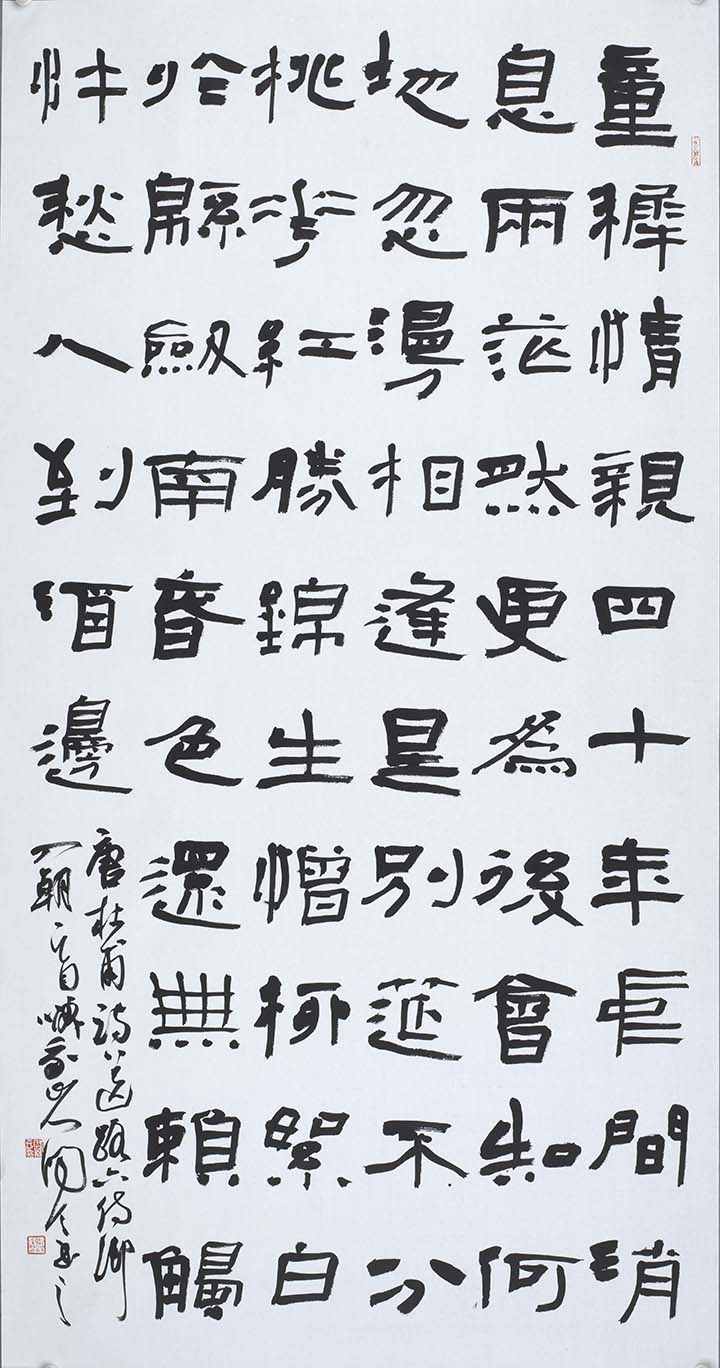 童穉情親四十年中間消
息兩茫然更為後會知何
地忽漫相逢是別筵不分
桃花紅勝錦生憎柳絮白
於緜劒南春色還無賴觸
忤愁人到酒邊
唐杜甫詩送路六侍御
入朝一首